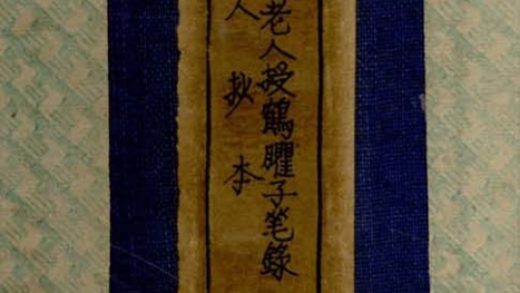 老人授鶴臞子笔錄
人 抄本